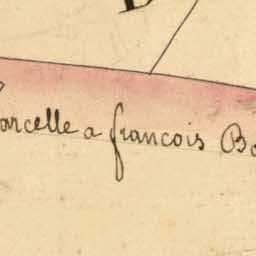 arcelle a francois Bo